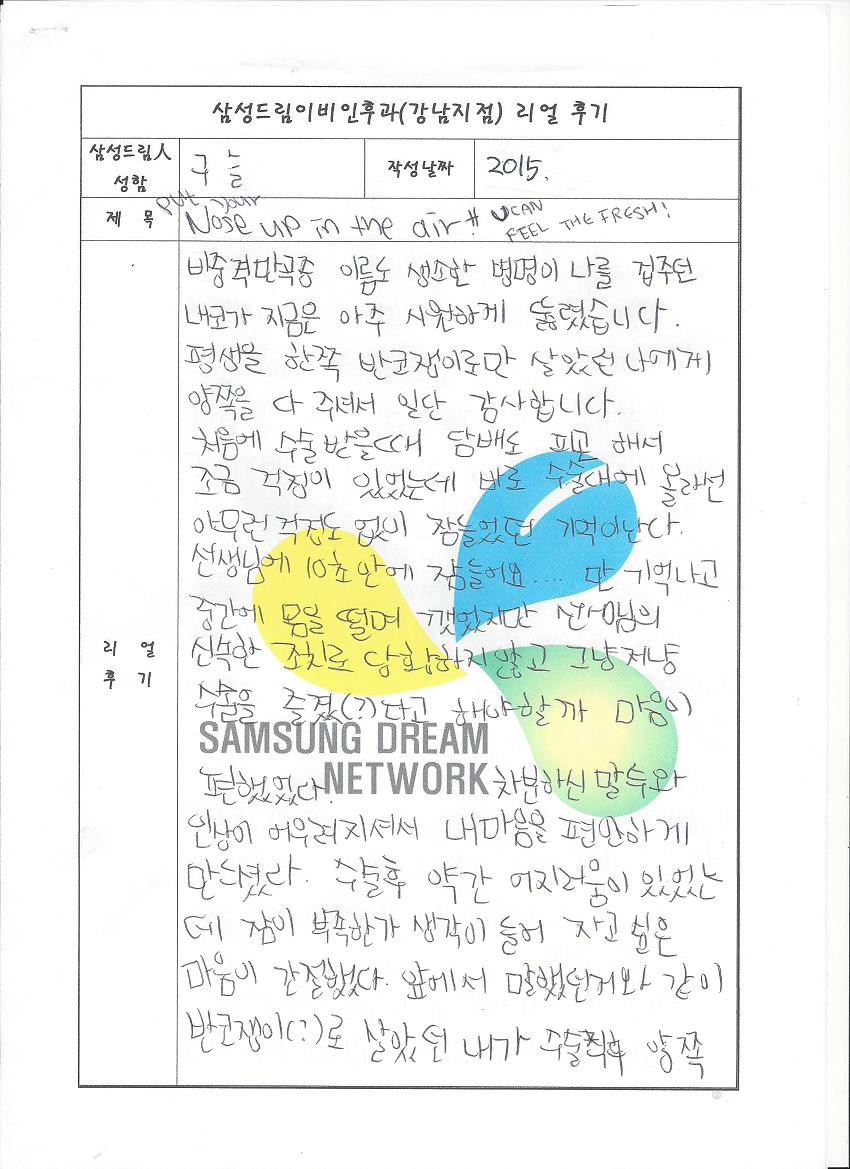 삼성드림이비인후과(강남지점) 리얼 후기
삼성드림人
성함
구늘
작성날짜
2015.
제 목
put your
Nose up in the air!! U CAN
FEEL THE FRESH!
비중격만곡증 이름도 생소한 병명이 나를 겁주던
내코가 지금은 아주 시원하게 뚫렸습니다.
평생을 한쪽 반코쟁이로만 살았던 나에게
양쪽을 다 주셔서 일단 감사합니다.
처음에 수술 받을때 담배도 피고 해서
조금 걱정이 있었는데 바로 수술대에 올라선
아무런 걱정도 없이 잠들었던 기억이난다.
선생님에 10초 안에 잠들어요.... 만 기억나고
중간에 몸을 떨며 깼었지만 선생님의
신속한 조치로 당황하지않고 그냥저냥
수술을 즐겼(?)다고 해야할까 마음이
SAMSUNG DREAM
NETWORK
편했었다. 차분하신 말투와
인상이 어우러지셔서 내마음을 편안하게
만드셨다. 수술후 약간 어지러움이 있었는
데 잠이 부족한가 생각이 들어 자고 싶은
마음이 간절했다. 앞에서 말했던거와 같이
반코쟁이(?)로 살았던 내가 수술 후 양쪽
리 얼
후 기